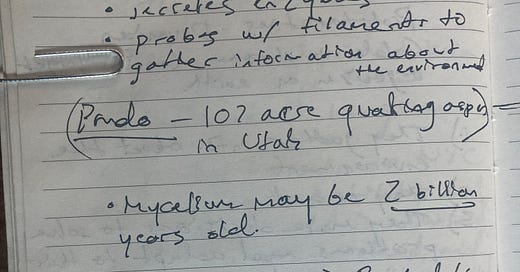 • secretes enzymes
• probes w/ filaments to
gather information about
the environment
(Pando – 107 acre quaking aspen)
in Utah
• Mycelium may be 2 billion
years old.